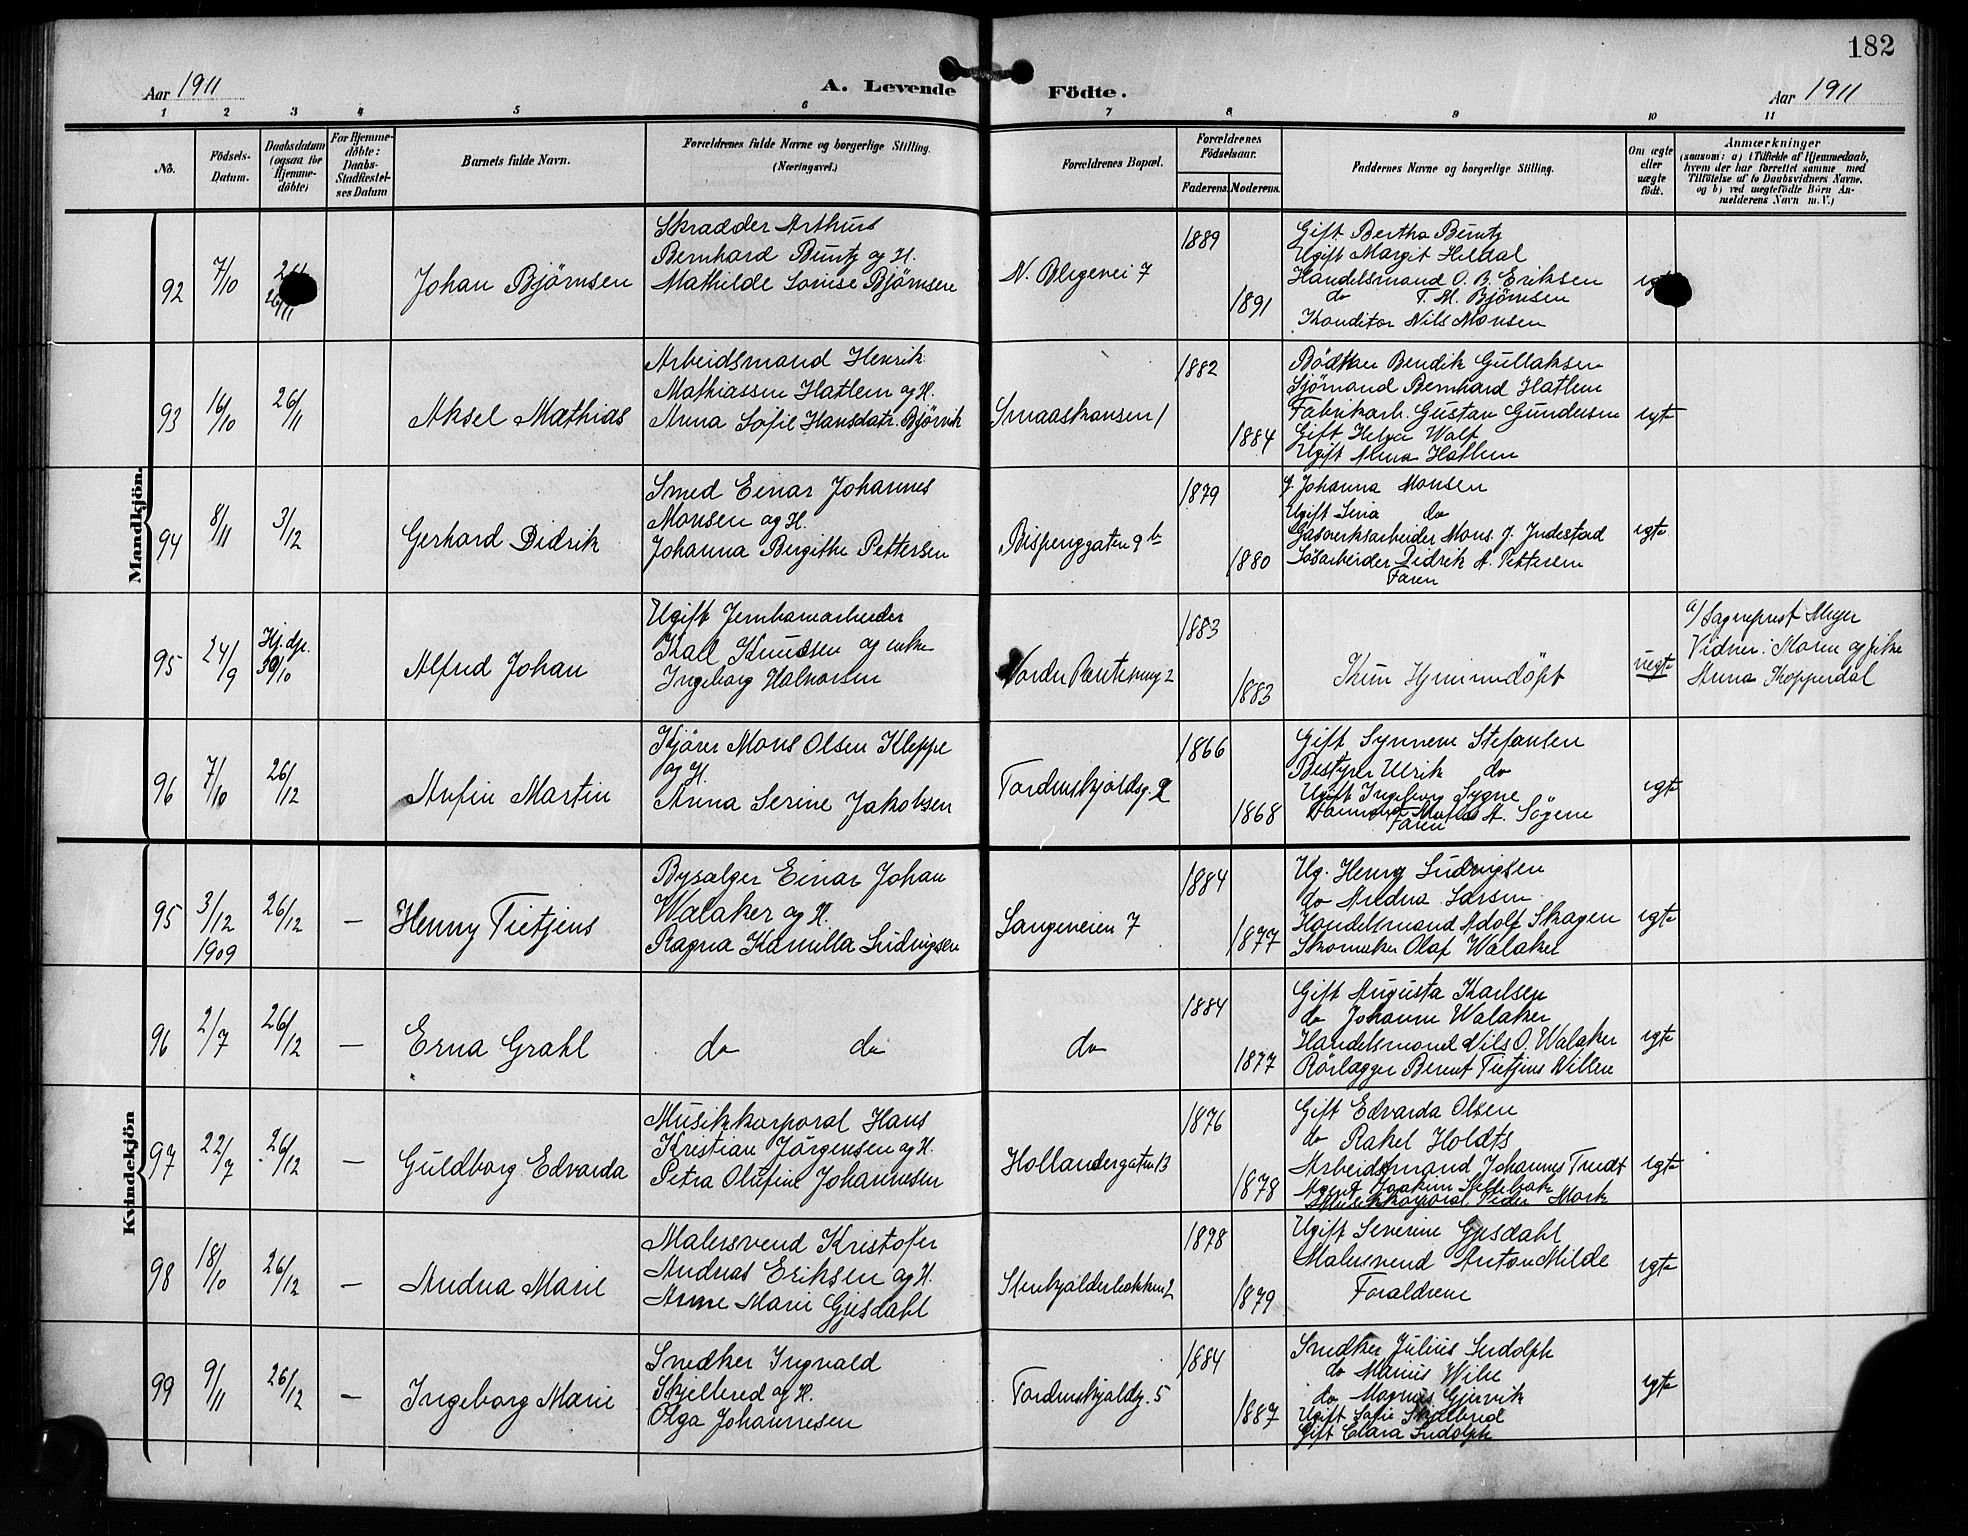 182
Aar 1911
A. Levende Födte.
Aar 1911
1 2 3 4 5 6 7 8 9 10 11
No.
Födsels-
Datum.
Daabsdatum
(ogsaa for
Hjemme-
döbte)
For Hjemme-
döbte:
Daabs-
Stadfæstel-
ses Datum
Barnets fulde Navn.
Forældrenes fulde Navne og borgerlige Stilling.
(Næringsvei.)
Forældrenes Bopæl.
Forældrenes
Födselsaar.
Faderens. Moderens.
Faddernes Navne og borgerlige Stilling.
Om ægte
eller
uægte
födt.
Anmærkninger
(saasom: a) i Tilfælde af Hjemmedaab,
hvem der har forrettet samme med
Tilföielse af to Daabsvidners Navne.
og b) ved uægtefödte Börn An-
melderens Navn m. V.)
Mandkjön.
92
7/10
26/11
Johan Bjørnsen
Skrædder Arthurs
Bernhard Buntz og H.
Mathilde Louise Bjørnsen
N. Blegevei 7
1889
1891
Gift Bertha Buntz
Ugift Margit Heldal
Handelsmand O. B. Eriksen
do T. M. Bjørnsen
Konditor Nils Monsen
93
16/10
26/11
Aksel Mathias
Arbeidsmand Henrik
Mathiassen Hatlem og H.
Anna Sofie Hansdatr. Bjørvik
Smaaskansen 1
1882
1884
Bödker Bendik Gullaksen
Sjömand Bernhard Hatlem
Fabrikarb. Gustav Gundersen
Gift Helga Wolf
Ugift Alma Hatlem
egte
94
8/11
3/12
Gerhard Didrik
Smed Einar Johannes
Monsen og H.
Johanna Birgithe Pettersen
Bispenggaten 9 b
1879
1880
g. Johanna Monsen
Ugift Lina do
Gasverksarbeider Mons J. Indestad
Lösarbeider Didrik A. Pettersen
Faren
egte
95
24/9
Hj. dp.
30/10
Alfred Johan
Ugift Jernbanearbeider
Karl Knudsen og enke
Ingeborg Halvorsen
Nordre Skutevig 2
1883
1883
Kun Hjemmedöpt
uegte
a/ Sogneprest Meyer
Vidner: Moren og frk
Anna Kopperdal
96
7/10
26/12
Anfin Martin
Kjörer Mons Olsen Kleppe
og H.
Anna Serine Jakobsen
Tordenskjoldsg. 2
1866
1868
Gift Synneve Stefansen
Bestyrer Ulrik do
Ugift Ingeborg Sygne
A. Sögne
Faren
egte
Kvindekjön
95
3/12
1909
26/12
—
Henny Tietjens
Bysælger Einar Johan
Walaker og H.
Ragna Kamilla Ludvigsen
Langeveien 7
1884
1877
Ug. Henny Ludvigsen
do Andrea Larsen
Handelsmand Adolf Skagen
Skomaker Olaf Walaker
egte
96
2/7
26/12
—
Erna Grahl
do do
do
1884
1877
Gift Augusta Karlsen
do Johanne Walaker
Handelsmand Nils O. Walaker
Rörlægger Berent Tietjens Nilsen
egte
97
22/7
26/12
—
Guldborg Edvarda
Musikkorporal Hans
Kristian Jörgensen og H.
Petra Olufine Johannesen
Hollendergaten 13
1876
1878
Gift Edvarda Olsen
do Rakel Holdts
Arbeidsmand Johannes Tredt
Agent Joakim
Musikkorporal Peder Mork
egte
98
18/10
26/12
—
Andrea Marie
Malersvend Kristofer
Andreas Eriksen og H.
Anne Marie Gjesdahl
Stenkjælderbakken 2
1878
1879
Ugift Severine Gjesdahl
Malersvend Anton Milde
Forældrene
egte
99
9/11
26/12
—
Ingeborg Marie
Snedker Ingvald
Skjelbred og H.
Olga Johannesen
Tordenskjoldsg. 5
1884
1887
Snedker Julius Ludolph
do Marius Wibe
do Magnus Gjervik
Ugift Sofie Skjelbred
Gift Clara Ludolph
egte